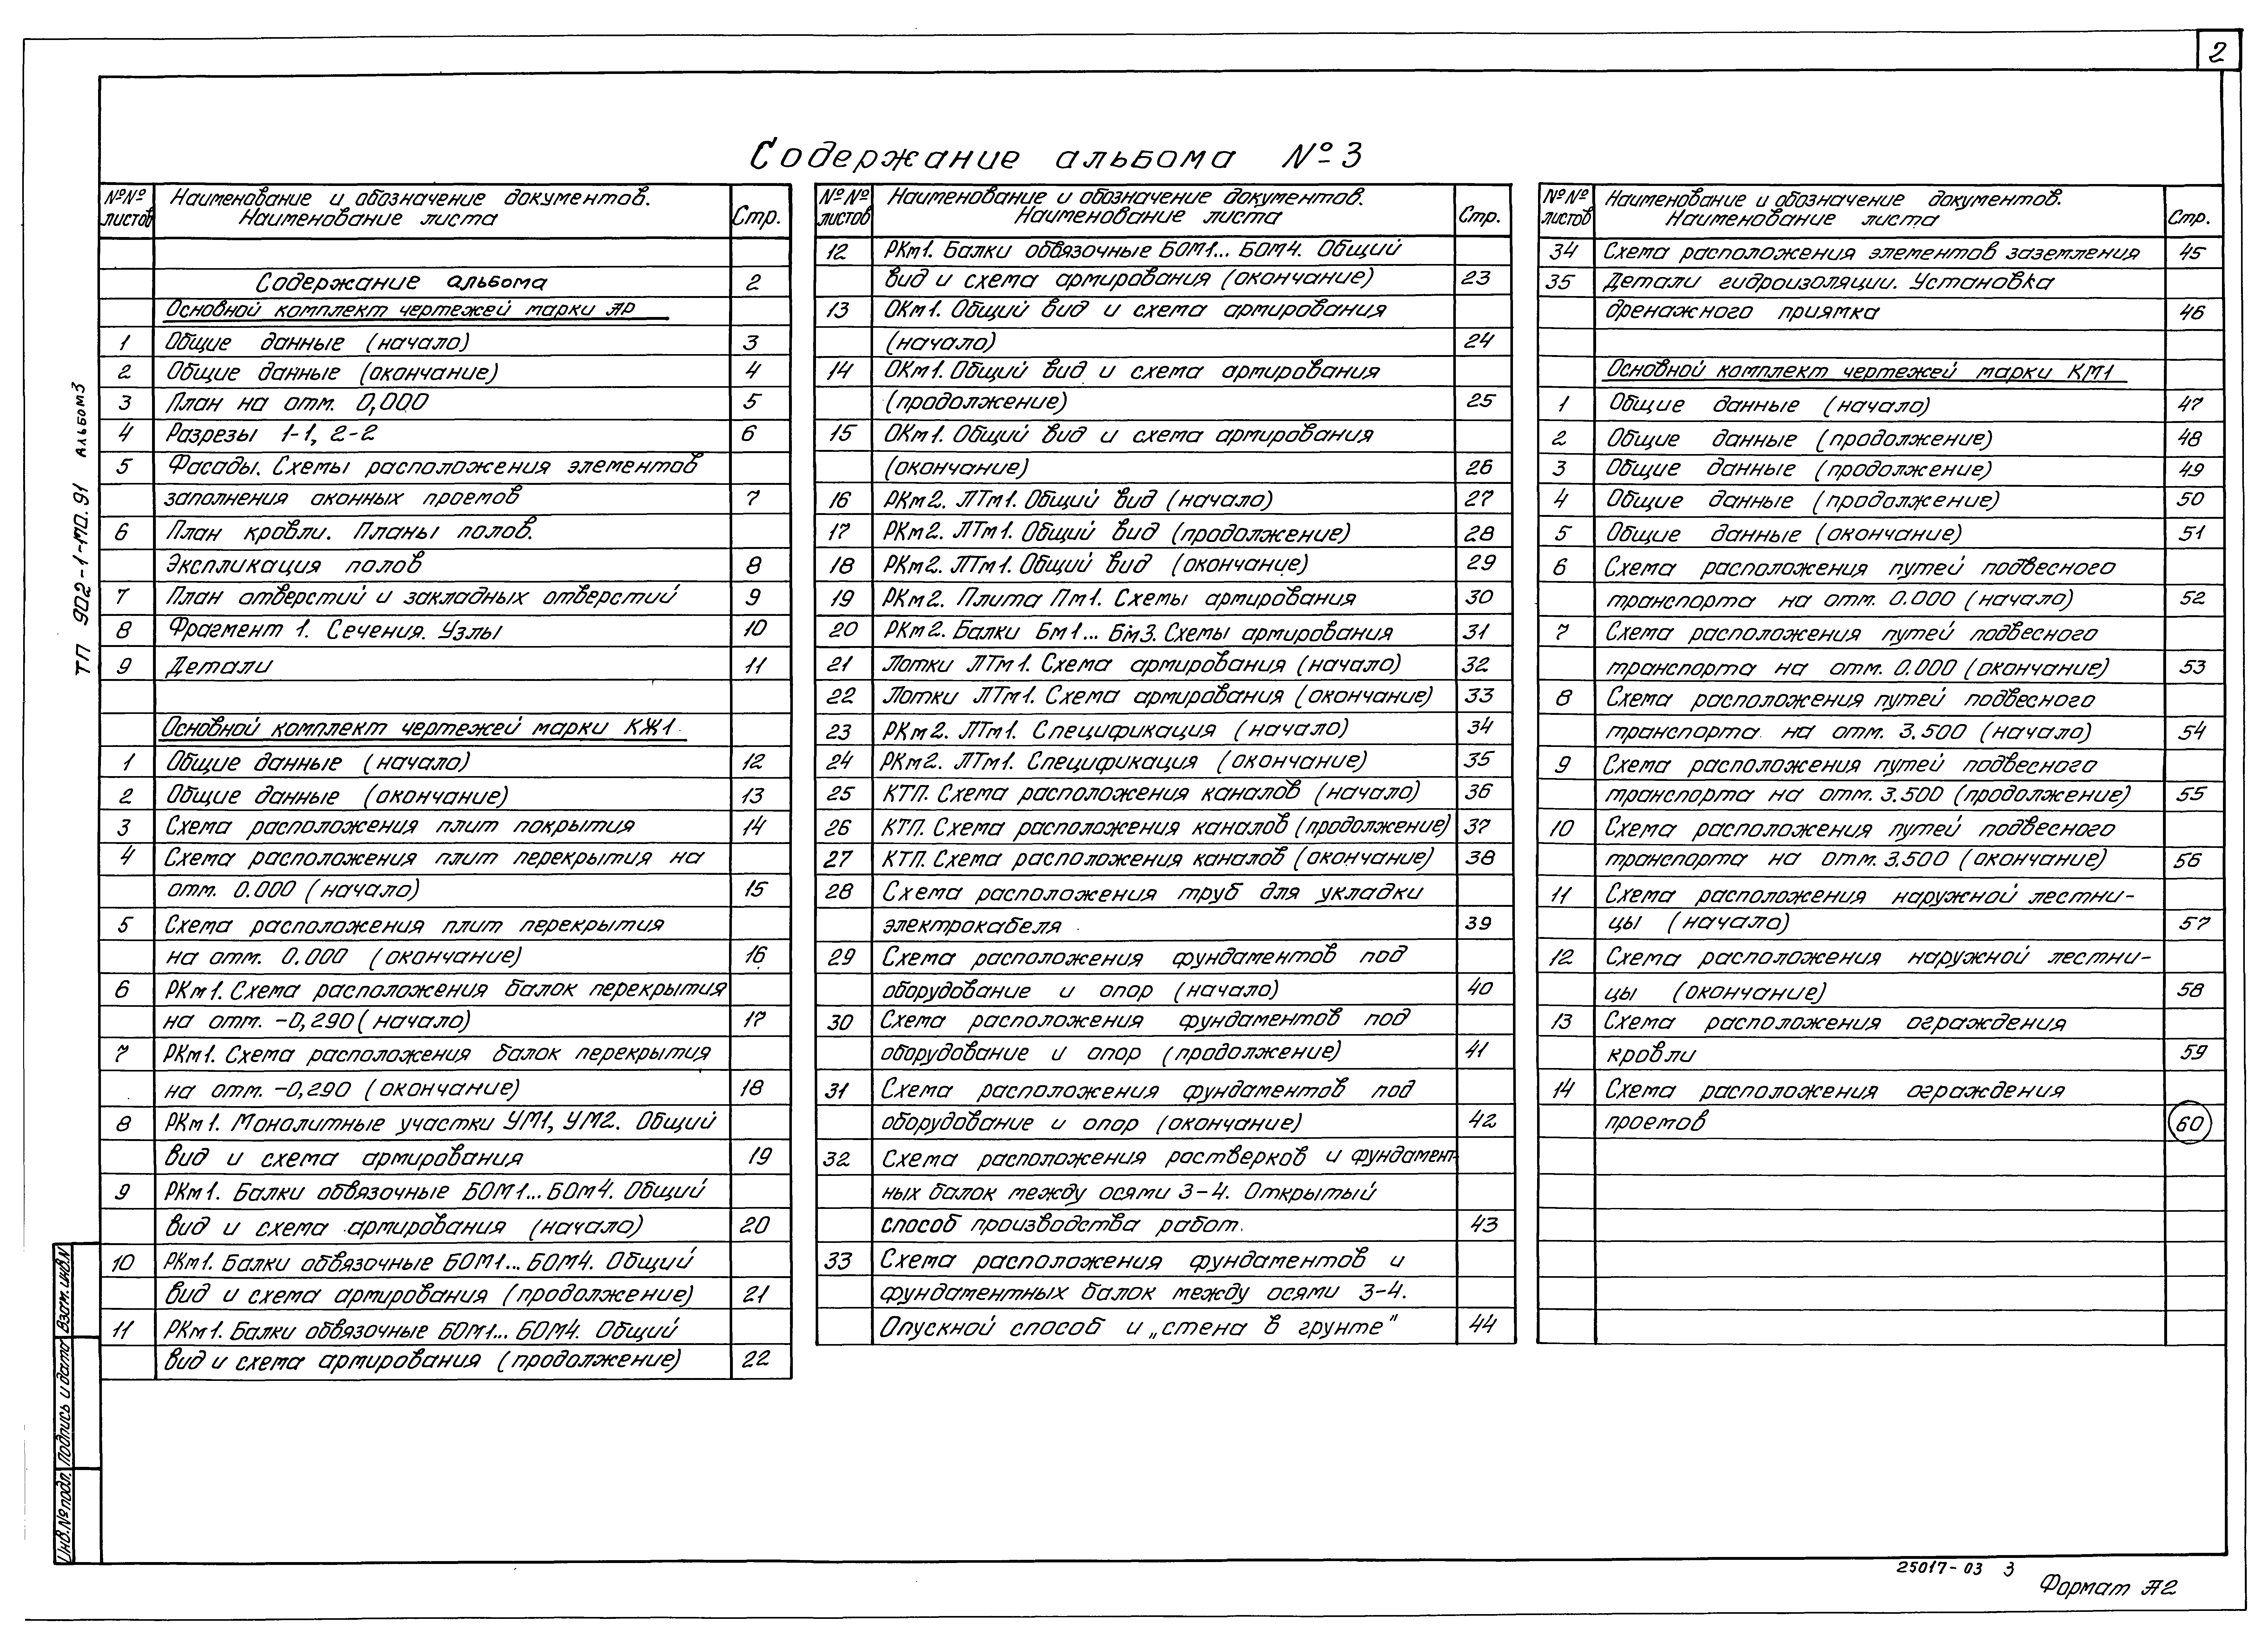 2
Содержание альбома № 3
№№ листов Наименование и обозначение документов. Наименование листа Стр.
Содержание альбома 2
Основной комплект чертежей марки АР
1 Общие данные (начало) 3
2 Общие данные (окончание) 4
3 План на отм. 0,000 5
4 Разрезы 1-1, 2-2 6
5 Фасады. Схемы расположения элементов
заполнения оконных проемов 7
6 План кровли. Планы полов.
Экспликация полов 8
7 План отверстий и закладных отверстий 9
8 Фрагмент 1. Сечения. Узлы 10
9 Детали 11
Основной комплект чертежей марки КЖ1
1 Общие данные (начало) 12
2 Общие данные (окончание) 13
3 Схема расположения плит покрытия 14
4 Схема расположения плит перекрытия на
отм. 0.000 (начало) 15
5 Схема расположения плит перекрытия
на отм. 0.000 (окончание) 16
6 РКм1. Схема расположения балок перекрытия
на отм. -0,290 (начало) 17
7 РКм1. Схема расположения балок перекрытия
на отм. -0,290 (окончание) 18
8 РКм1. Монолитные участки УМ1, УМ2. Общий
вид и схема армирования 19
9 РКм1. Балки обвязочные БОМ1...БОм4. Общий
вид и схема армирования (начало) 20
10 РКм1. Балки обвязочные БОМ1...БОМ4. Общий
вид и схема армирования (продолжение) 21
11 РКм1. Балки обвязочные БОМ1...БОМ4. Общий
вид и схема армирования (продолжение) 22
№№ листов Наименование и обозначение документов. Наименование листа Стр.
12 РКм1. Балки обвязочные БОМ1...БОМ4. Общий
вид и схема армирования (окончание) 23
13 ОКм1. Общий вид и схема армирования
(начало) 24
14 ОКм1. Общий вид и схема армирования
(продолжение) 25
15 ОКм1. Общий вид и схема армирования
(окончание) 26
16 РКм2. ЛТм1. Общий вид (начало) 27
17 РКм2. ЛТм1. Общий вид (продолжение) 28
18 РКм2. ЛТм1. Общий вид (окончание) 29
19 РКм2. Плита Пм1. Схемы армирования 30
20 РКм2. Балки Бм1... Бм3. Схемы армирования 31
21 Лотки ЛТм1. Схема армирования (начало) 32
22 Лотки ЛТм1. Схема армирования (окончание) 33
23 РКм2. ЛТм1. Спецификация (начало) 34
24 РКм2. ЛТм1. Спецификация (окончание) 35
25 КТП. Схема расположения каналов (начало) 36
26 КТП. Схема расположения каналов (продолжение) 37
27 КТП. Схема расположения каналов (окончание) 38
28 Схема расположения труб для укладки
электрокабеля 39
29 Схема расположения фундаментов под
оборудование и опор (начало) 40
30 Схема расположения фундаментов под
оборудование и опор (продолжение) 41
31 Схема расположения фундаментов под
оборудование и опор (окончание) 42
32 Схема расположения ростверков и фундамент-
ных балок между осями 3-4. Открытый
способ производства работ. 43
33 Схема расположения фундаментов и
фундаментных балок между осями 3-4.
Опускной способ и „стена в грунте" 44
№№ листов Наименование и обозначение документов. Наименование листа Стр.
34 Схема расположения элементов заземления 45
35 Детали гидроизоляции. Установка
дренажного приямка 46
Основной комплект чертежей марки КМ1
1 Общие данные (начало) 47
2 Общие данные (продолжение) 48
3 Общие данные (продолжение) 49
4 Общие данные (продолжение) 50
5 Общие данные (окончание) 51
6 Схема расположения путей подвесного
транспорта на отм. 0.000 (начало) 52
7 Схема расположения путей подвесного
транспорта на отм. 0.000 (окончание) 53
8 Схема расположения путей подвесного
транспорта на отм. 3.500 (начало) 54
9 Схема расположения путей подвесного
транспорта на отм. 3.500 (продолжение) 55
10 Схема расположения путей подвесного
транспорта на отм. 3.500 (окончание) 56
11 Схема расположения наружной лестни-
цы (начало) 57
12 Схема расположения наружной лестни-
цы (окончание) 58
13 Схема расположения ограждения
кровли 59
14 Схема расположения ограждения
проемов 60
ТП 902-1-170.91 Альбом 3
Взам. инв.№
Подпись и дата
Инв.№ подл.
25017-03 3
Формат А2